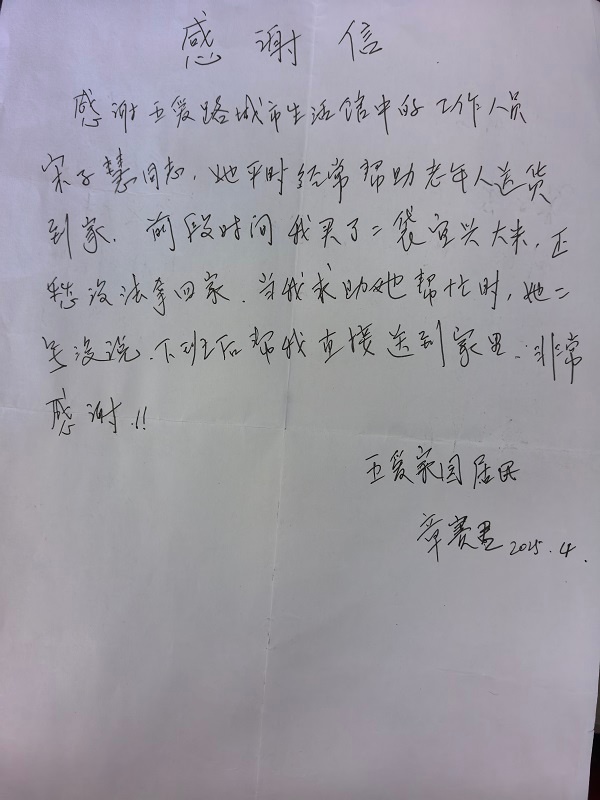 感谢信
感谢五爱路城市生活馆中的工作人员
宋子慧同志，她平时经常帮助老年人送货
到家．前段时间我买了二袋宜兴大米，正
愁没法拿回家．当我求助她帮忙时，她二
号没说．下班后帮我直接送到家里．非常
感谢！！
五爱家园居民
章赛 2025.4.